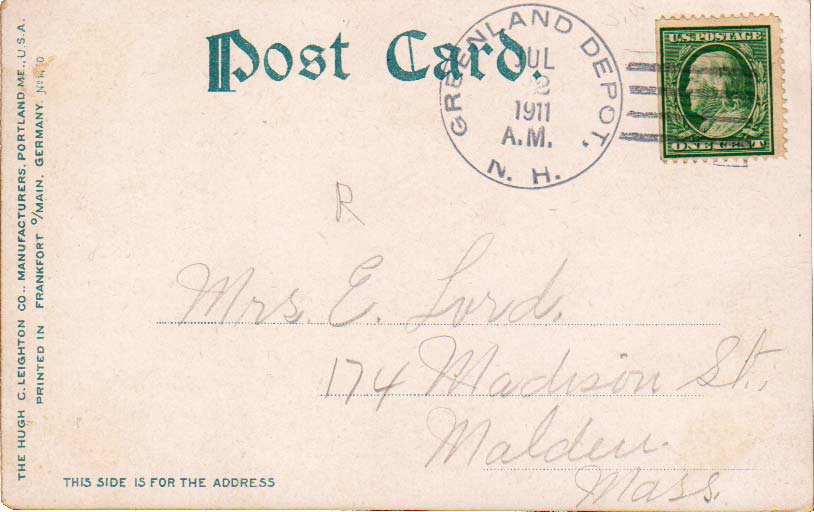 Post Card.
GREENLAND DEPOT, N. H.
JUL
1911
A.M.
U.S. POSTAGE
ONE CENT
R
Mrs. E. Lord.
174 Madison St.,
Malden
Mass.
THIS SIDE IS FOR THE ADDRESS
THE HUGH C. LEIGHTON CO., MANUFACTURERS, PORTLAND, ME., U.S.A.
PRINTED IN FRANKFORT O/MAIN, GERMANY